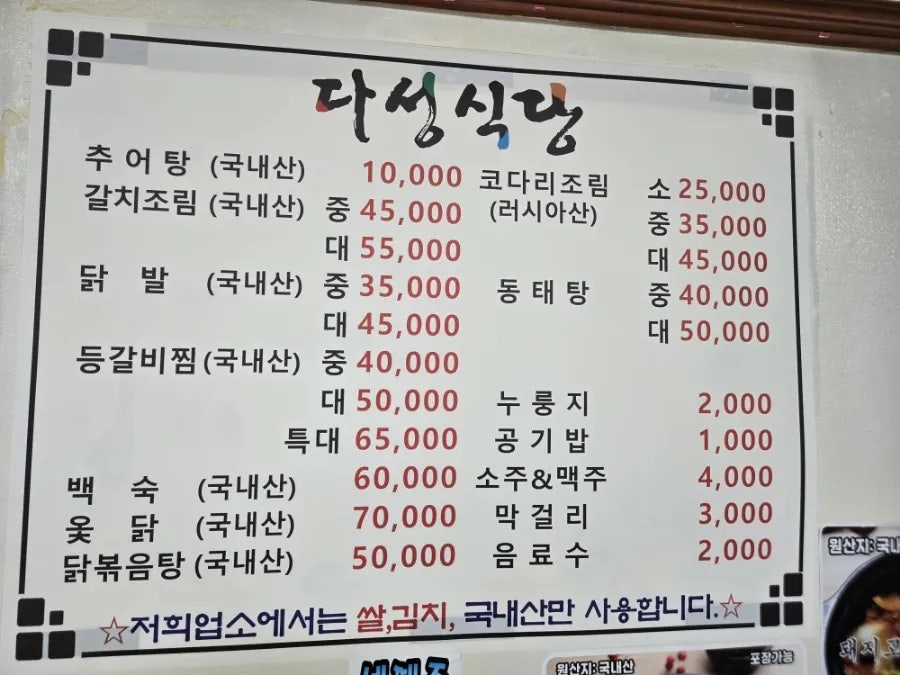 다성식당
추어탕 (국내산) 10,000
갈치조림 (국내산) 중 45,000
대 55,000
닭 발 (국내산) 중 35,000
대 45,000
등갈비찜 (국내산) 중 40,000
대 50,000
특대 65,000
백 숙 (국내산) 60,000
옻 닭 (국내산) 70,000
닭볶음탕 (국내산) 50,000
코다리조림 소 25,000
(러시아산) 중 35,000
대 45,000
동태탕 중 40,000
대 50,000
누룽지 2,000
공기밥 1,000
소주&맥주 4,000
막걸리 3,000
음료수 2,000
☆저희업소에서는 쌀,김치, 국내산만 사용합니다.☆
원산지: 국내산
포장가능